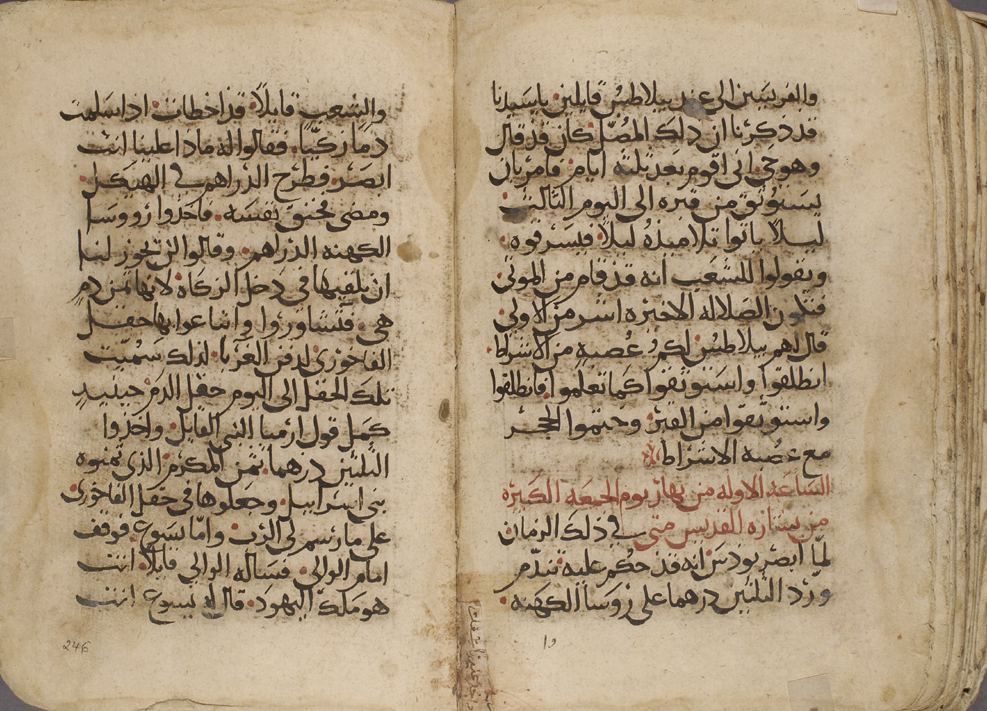 والفريسين الى عند بيلاطس قايلين ياسيدنا
قد ذكرنا ان ذلك المضل كان قد قال
وهو حي انى اقوم بعد ثلثه ايام فامر بان
يستوثق من قبره الى اليوم الثالث
ليلا ياتوا تلاميذه ليلا فيسرقوه
ويقولوا للشعب انه قد قام من الموتى
فتكون الضلاله الاخيره اشر من الاولى
قال لهم بيلاطس لكم عصبه من الاشراط
انطلقوا واستوثقوا كما تعلموا فانطلقوا
واستوثقوا من القبر وختموا الحجر
مع عصبه الاشراط
الساعه الاوله من نهار يوم الجمعه الكبيره
من بشاره القديس متى في ذلك الزمان
لما ابصر يودس انه قد حكم عليه تندم
ورد الثلثين درهما على روسا الكهنه
والشعب قايلا قد اخطات اد اسلمت
دما زكيا فقالوا له ماذا علينا انت
ابصر فطرح الدراهم في الهيكل
ومضى فخنق نفسه فاخذوا رووسا
الكهنه الدراهم وقالوا لن يجوز لنا
ان نلقيها في دخل الزكاه لانها ثمن دم
هي فتشاوروا واشاعوا بها حقل
الفاخورى لدفن الغربا لذلك سميت
تلك الحقل الى اليوم حقل الدم حينيد
كمل قول ارميا النبي القايل واخدوا
الثلثين درهما ثمن المكرم الذي ثمنوه
بنى اسراييل وجعلوها في حقل الفاخورى
على ما رسم لى الرب واما يسوع فوقف
امام الوالي فساله الوالي قايلا انت
هو ملك اليهود قال له يسوع انت
246